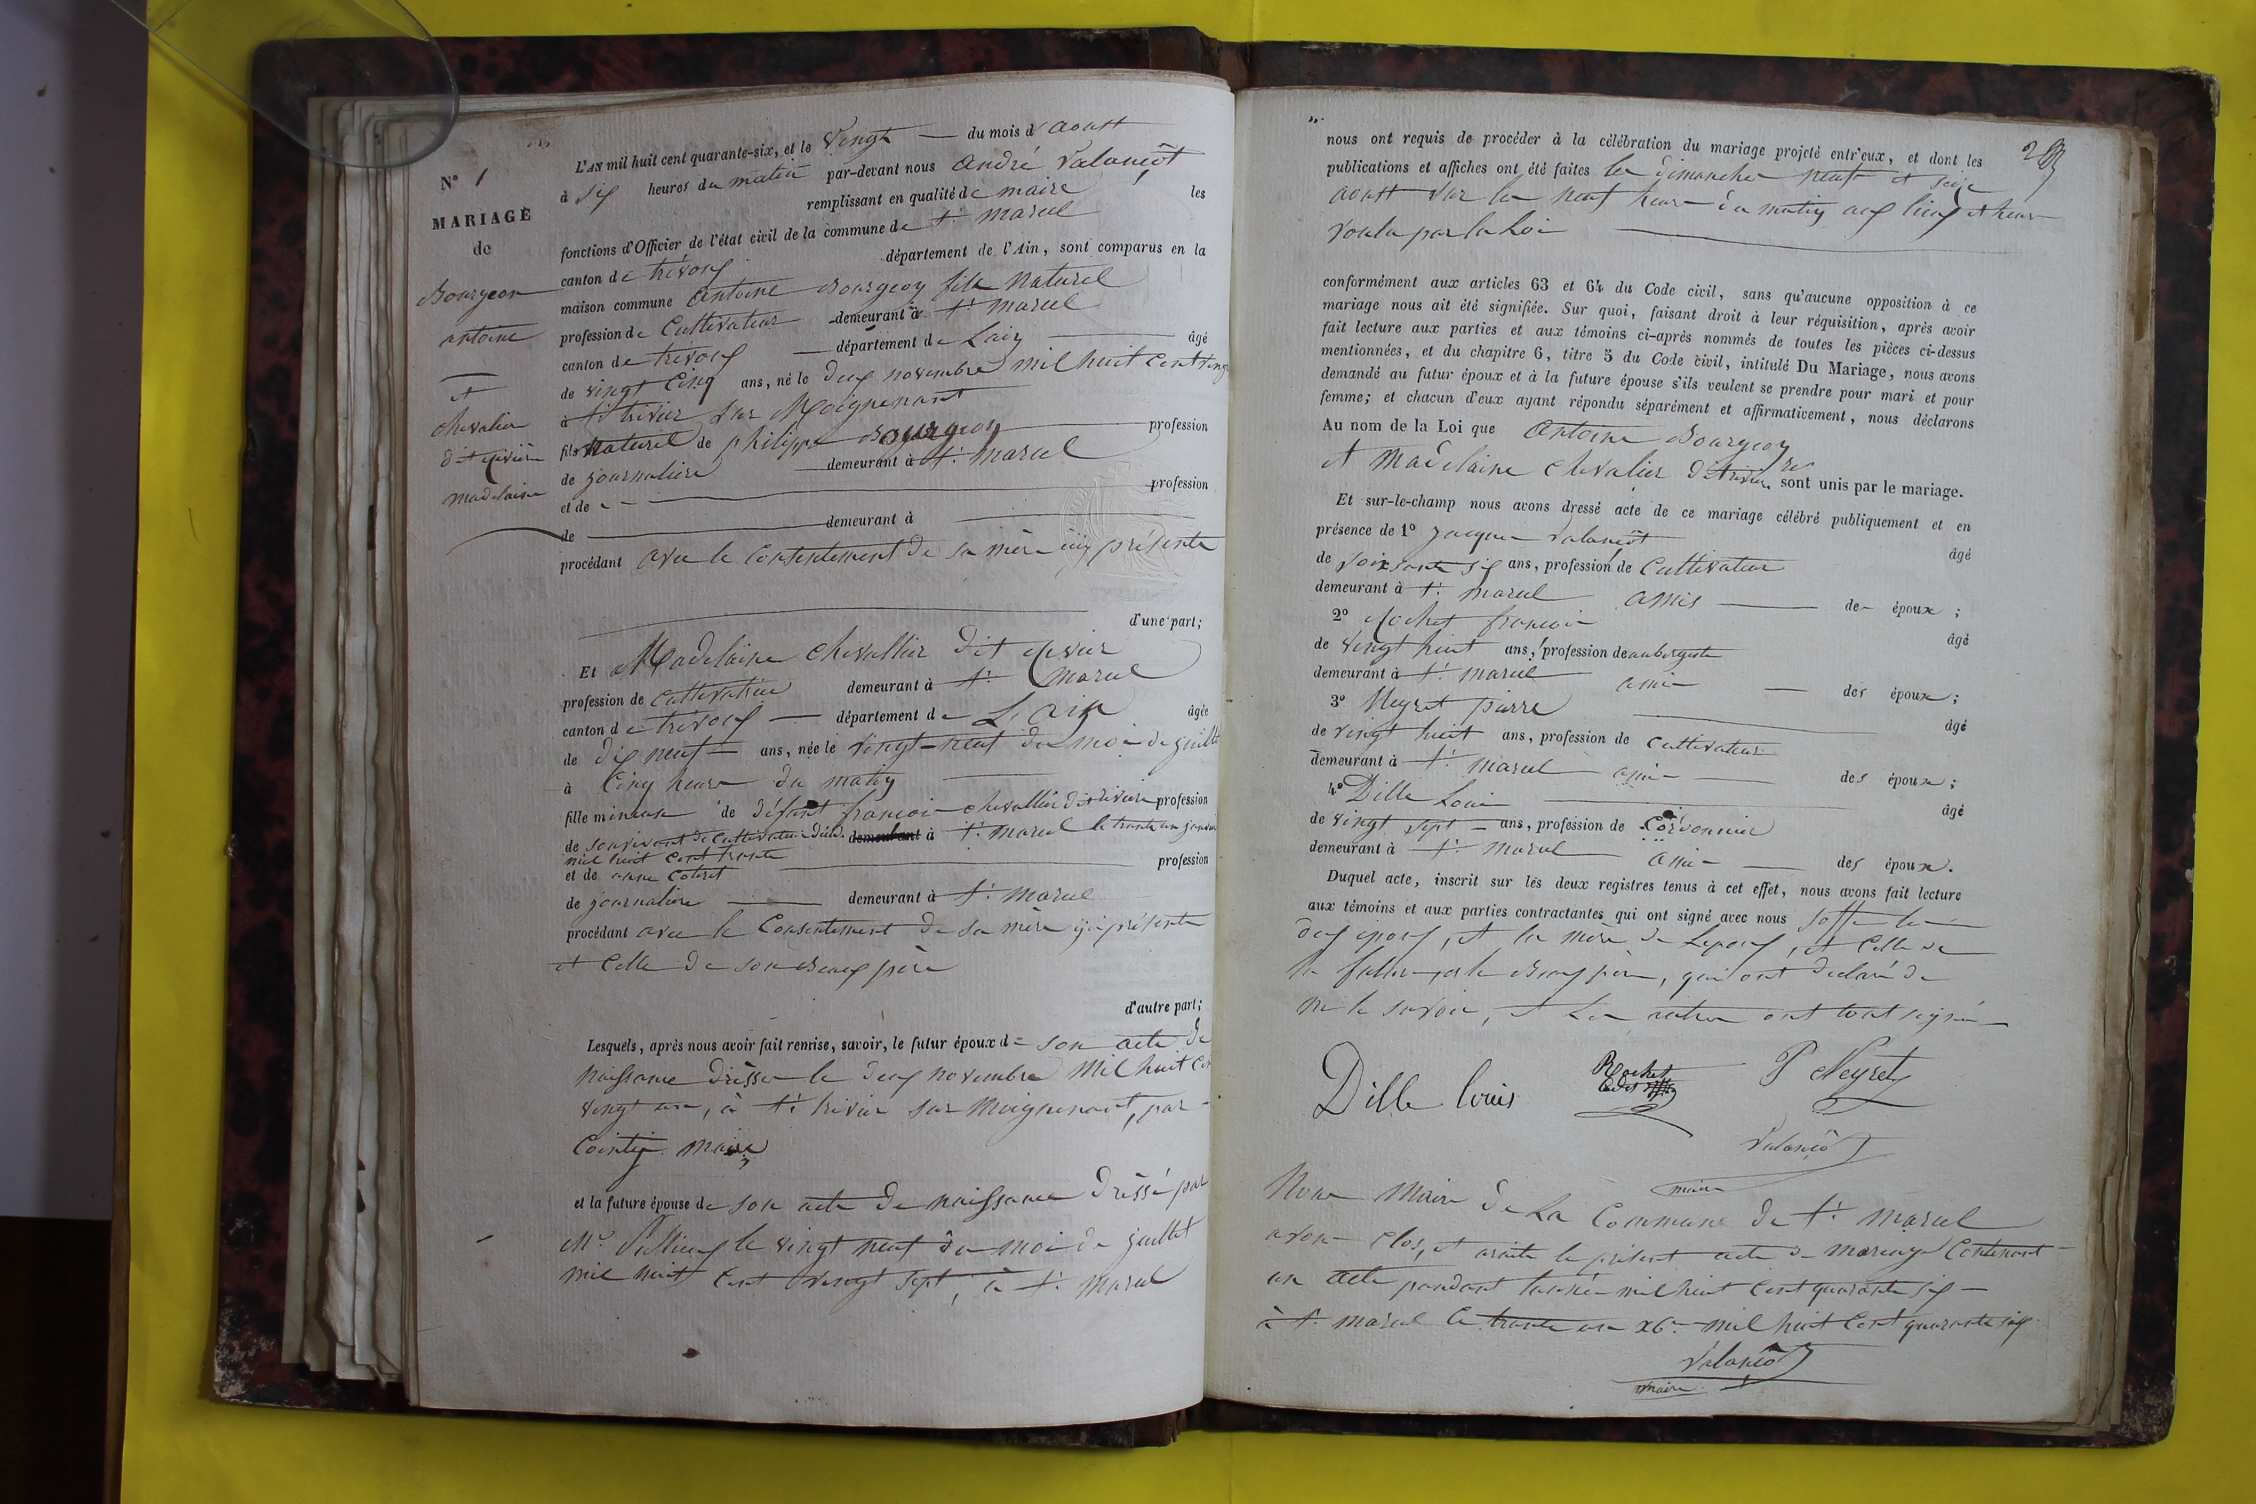 N° 1
MARIAGE
de
Bourgeon
antoine
et
chevalier
dit rivière
madelaine
L'AN mil huit cent quarante-six, et le vingt du mois d'aoust
à six heures du matin par-devant nous andré Valançôt
remplissant en qualité de maire les
fonctions d'Officier de l'état civil de la commune de St marcel
canton de trévoux département de l'Ain, sont comparus en la
maison commune antoine Bourgeon fils naturel
profession de Cultivateur demeurant à St marcel
canton de trévoux département de Lain âgé
de vingt cinq ans, né le deux novembre mil huit cent vingt
à St trivier sur Moignenant
fils naturel de philippe Bourgeon profession
de journaliere demeurant à St marcel
et de profession
de demeurant à
procédant avec le Consentement de sa mère icy présente
d'une part;
Et Madelaine chevallier dit rivier
profession de cultivatrice demeurant à St marcel
canton de trévoux département de L'ain âgée
de dix neuf ans, née le vingt-neuf du moi de juillet
à cinq heure du matin
fille mineure de défunt françoi chevallier dit riviere profession
de son vivant de Cultivateur décd. demeurant à St marcel le trente un janvier
mil huit cent trente
et de anne Coteret profession
de journaliere demeurant à St marcel
procédant avec le Consentement de sa mère ici présente
et Celle de son Beaux père
d'autre part;
Lesquels, après nous avoir fait remise, savoir, le futur époux de son acte de
naissance drèsser le deux novembre mil huit cent
vingt un, à St trivier sur moignenant, par
Cointy maire
et la future épouse de son acte de naissance drèssé par
Mr le vingt neuf du moi de juillet
mil huit cent vingt sept, à St marcel
nous ont requis de procéder à la célébration du mariage projeté entr'eux, et dont les
publications et affiches ont été faites les dimanches neuf et seize
aoust sur les neuf heure du matin aux lieux et heure
voulu par la Loi
conformément aux articles 63 et 64 du Code civil, sans qu'aucune opposition à ce
mariage nous ait été signifiée. Sur quoi, faisant droit à leur réquisition, après avoir
fait lecture aux parties et aux témoins ci-après nommés de toutes les pièces ci-dessus
mentionnées, et du chapitre 6, titre 5 du Code civil, intitulé Du Mariage, nous avons
demandé au futur époux et à la future épouse s'ils veulent se prendre pour mari et pour
femme; et chacun d'eux ayant répondu séparément et affirmativement, nous déclarons
Au nom de la Loi que antoine Bourgeon
et Madelaine chevalier dit riviere sont unis par le mariage.
Et sur-le-champ nous avons dressé acte de ce mariage célébré publiquement et en
présence de 1° jacque Valançôt âgé
de soixsante six ans, profession de Cultivateur
demeurant à St marcel amis de époux;
2° Rochet françoi âgé
de vingt huit ans, profession de aubergiste
demeurant à St marcel ami des époux;
3° Neyret pierre âgé
de vingt huit ans, profession de cultivateur
demeurant à St marcel ami des époux;
4° Dille Loui âgé
de vingt sept ans, profession de Cordonnier
demeurant à St marcel ami des époux.
Duquel acte, inscrit sur les deux registres tenus à cet effet, nous avons fait lecture
aux témoins et aux parties contractantes qui ont signé avec nous soffe les
deux époux, et la mère de Lepoux, et Celle de
la future, et le Beaux père, qui ont declaré de
ne le savoir, et Les autres ont tout signé
Dille louis
Rochet
P Neyret
Valançôt
maire
Nous Maire de La Commune de St marcel
avons clos, et arrêté le présent acte de mariage Contenant
un acte pendant l'année mil huit Cent quarante six
à St marcel le trente un xbr mil huit Cent quarante six
Valançôt
maire